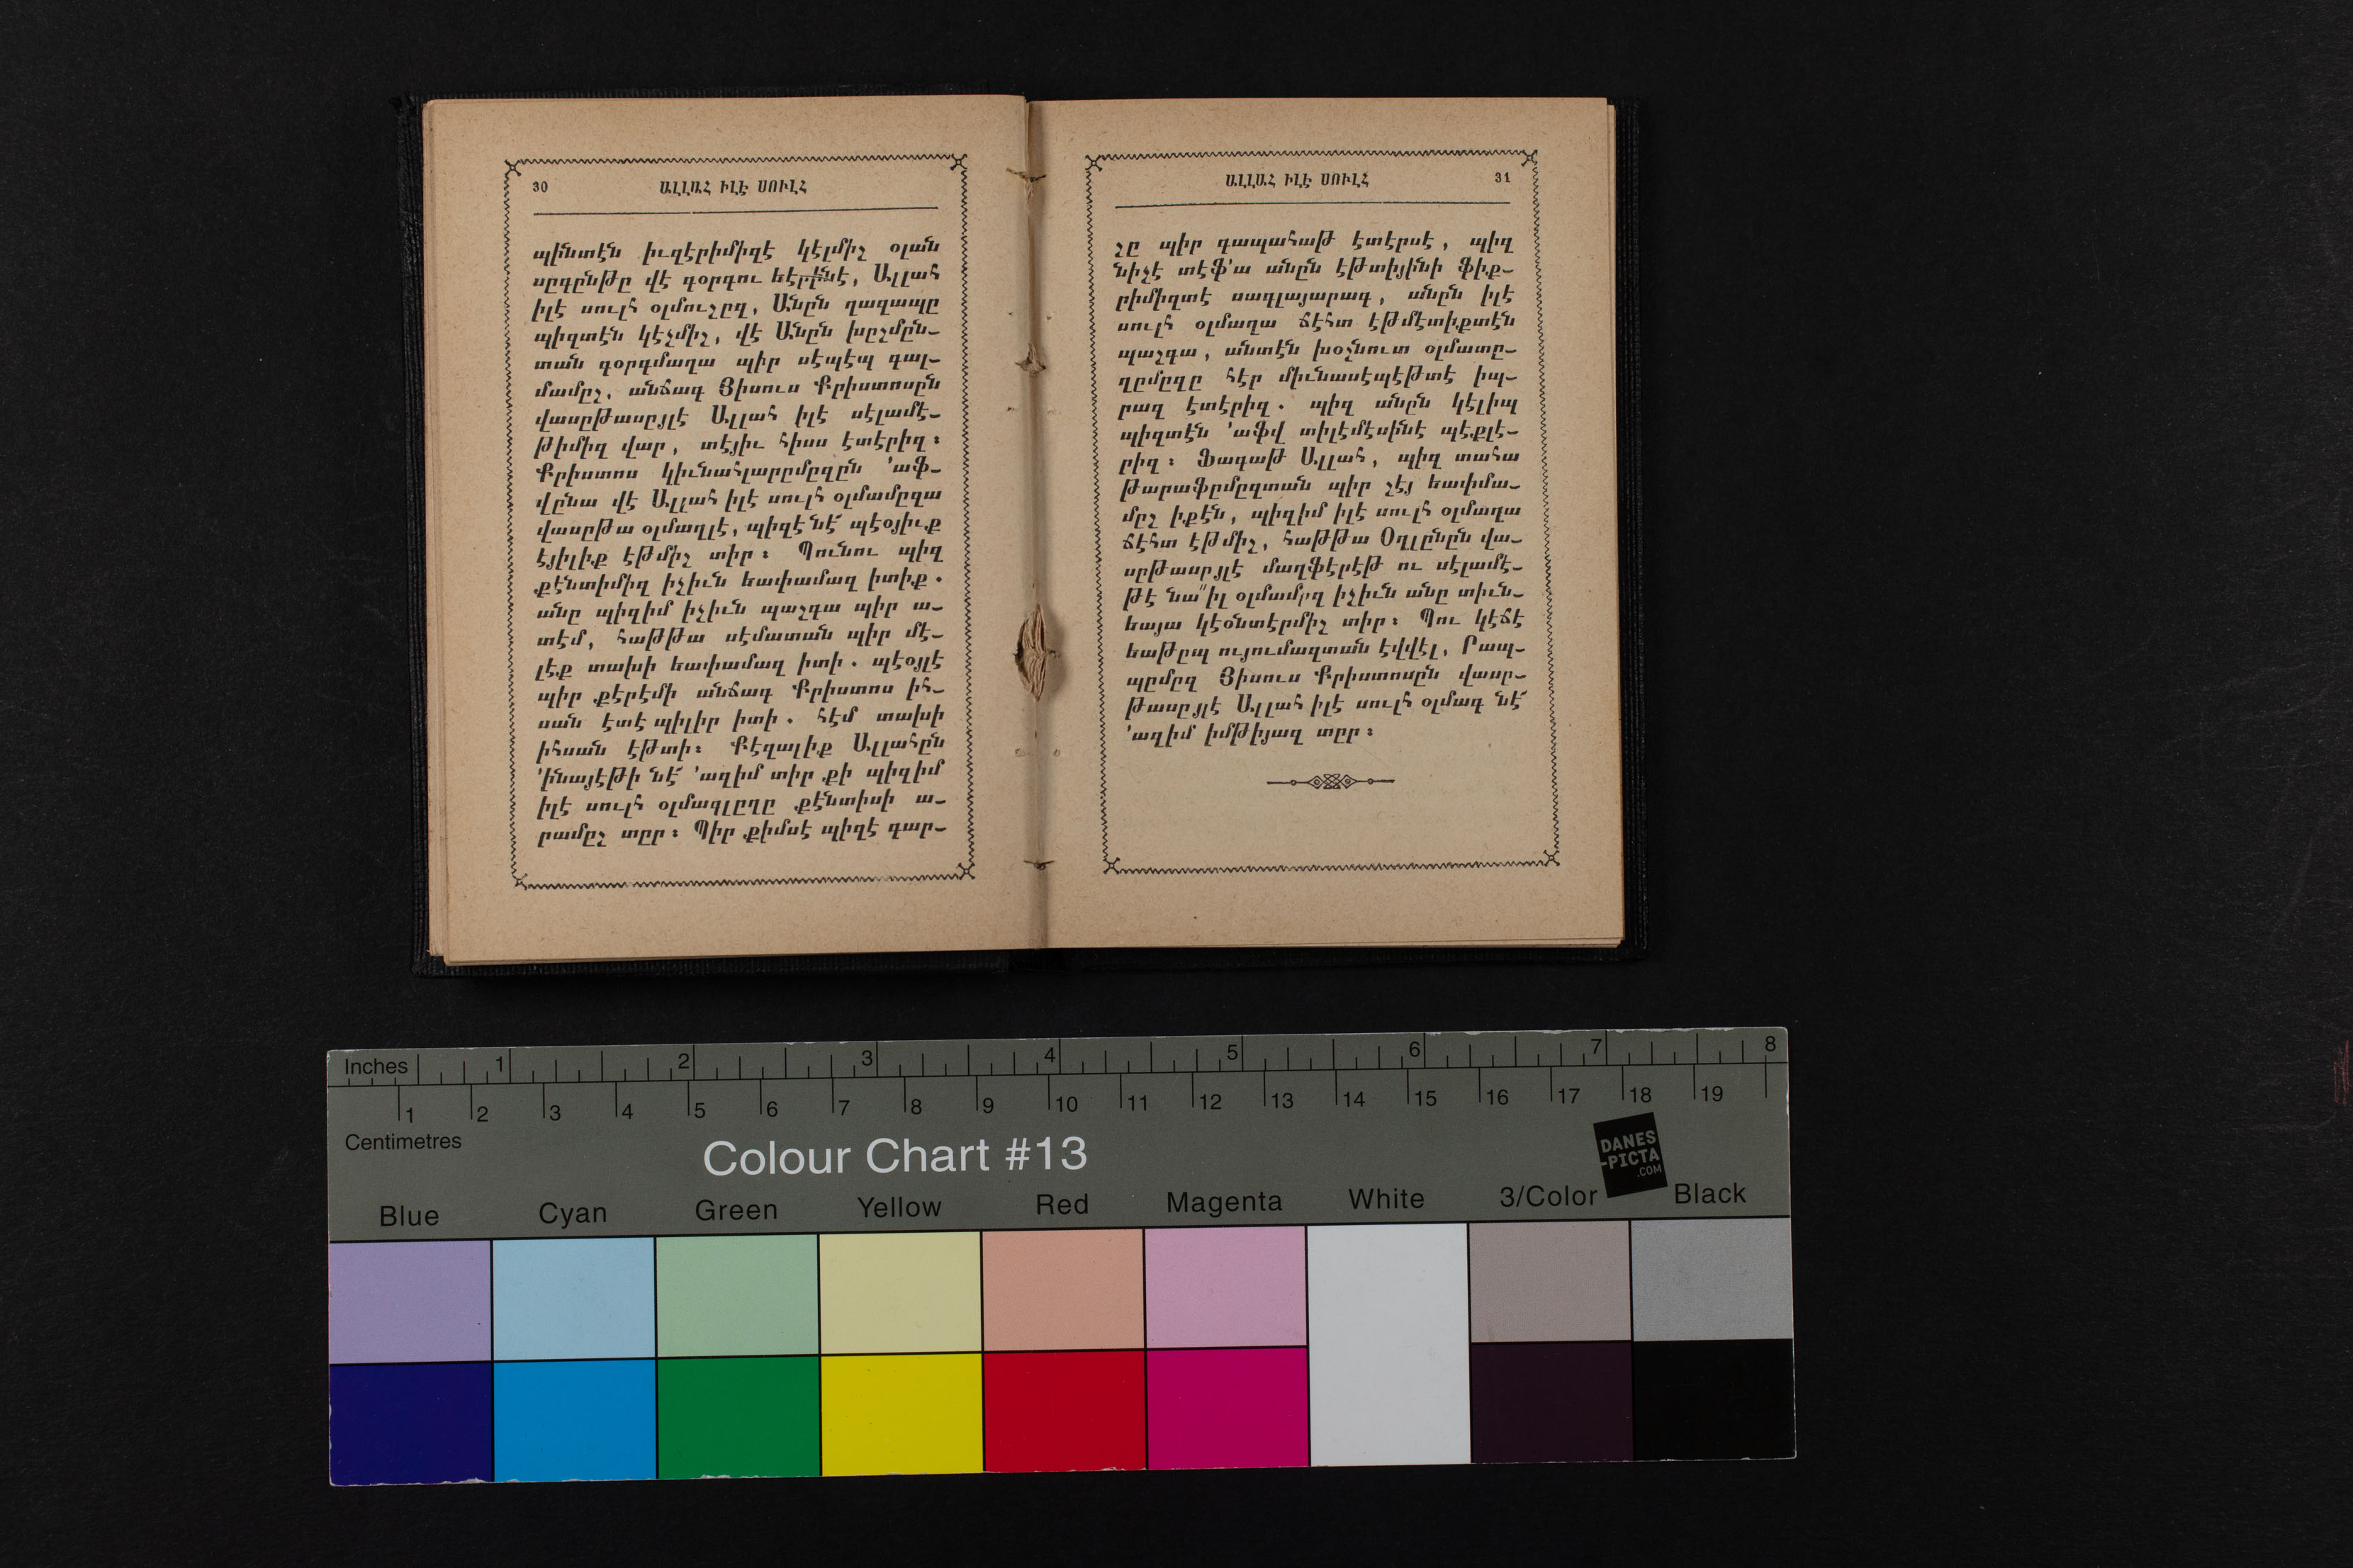 30 ԱԼԼԱՀ ԻԼԷ ՍՈՒԼՀ
պինտէն իւզէրիմիզէ կէլմիշ օլան
սըգընթը վէ գօրգու եէրինէ, Ալլահ
իլէ սուլհ օլմուշըզ, Անըն ղազապը
պիզտէն կէչմիշ, վէ Անըն խըշմըն–
տան գօրգմաղա պիր սէպէպ գալ–
մամըշ, անճագ Յիսուս Քրիստոսըն
վասըթասըյլէ Ալլահ իլէ սէլամէ–
թիմիզ վար, տէյիւ հիսս էտէրիզ։
Քրիստոս կիւնահլարըմըզըն ՚աֆ–
վընա վէ Ալլահ իլէ սուլհ օլմամըզա
վասըթա օլմաղլէ, պիզէ նէ՜ պէօյիւք
էյիլիք էթմիշ տիր։ Պունու պիզ
քէնտիմիզ իչիւն եափամազ իտիք.
անը պիզիմ իչիւն պաշգա պիր ա–
տէմ, հաթթա սէմատան պիր մէ–
լէք տախի եափամազ իտի. պէօյլէ
պիր քէրէմի անճագ Քրիստոս իհ–
սան էտէ պիլիր իտի. հէմ տախի
իհսան էթտի։ Քէզալիք Ալլահըն
՚ինայէթի նէ՜ ՚ազիմ տիր քի պիզիմ
իլէ սուլհ օլմագլըղը քէնտիսի ա–
րամըշ տըր։ Պիր քիմսէ պիզէ գար–
ԱԼԼԱՀ ԻԼԷ ՍՈՒԼՀ 31
շը պիր գապահաթ էտէրսէ, պիզ
նիչէ տէֆ՚ա անըն էթտիյինի ֆիք–
րիմիզտէ սագլայարագ, անըն իլէ
սուլհ օլմաղա ճէհտ էթմէտիքտէն
պաշգա, անտէն խօշնուտ օլմատը–
ղըմըզը հէր միւնասէպէթտէ իպ–
րազ էտէրիզ. պիզ անըն կէլիպ
պիզտէն ՚աֆվ տիլէմէսինէ պէքլէ–
րիզ։ Ֆագաթ Ալլահ, պիզ տահա
թարաֆըմըզտան պիր շէյ եափմա–
մըշ իքէն, պիզիմ իլէ սուլհ օլմաղա
ճէհտ էթմիշ, հաթթա Օղլընըն վա–
սըթասըյլէ մաղֆէրէթ ու սէլամէ–
թէ նա՛՛իլ օլմամըզ իչիւն անը տիւն–
եայա կէօնտէրմիշ տիր։ Պու կէճէ
եաթըպ ույումազտան էվվէլ, Րապ–
պըմըզ Յիսուս Քրիստոսըն վասը–
թասըյլէ Ալլահ իլէ սուլհ օլմագ նէ՜
՚ազիմ իմթիյազ տըր։
Inches 1 2 3 4 5 6 7 8
1 2 3 4 5 6 7 8 9 10 11 12 13 14 15 16 17 18 19
Centimetres
Colour Chart #13
DANES
-PICTA
.COM
Blue Cyan Green Yellow Red Magenta White 3/Color Black